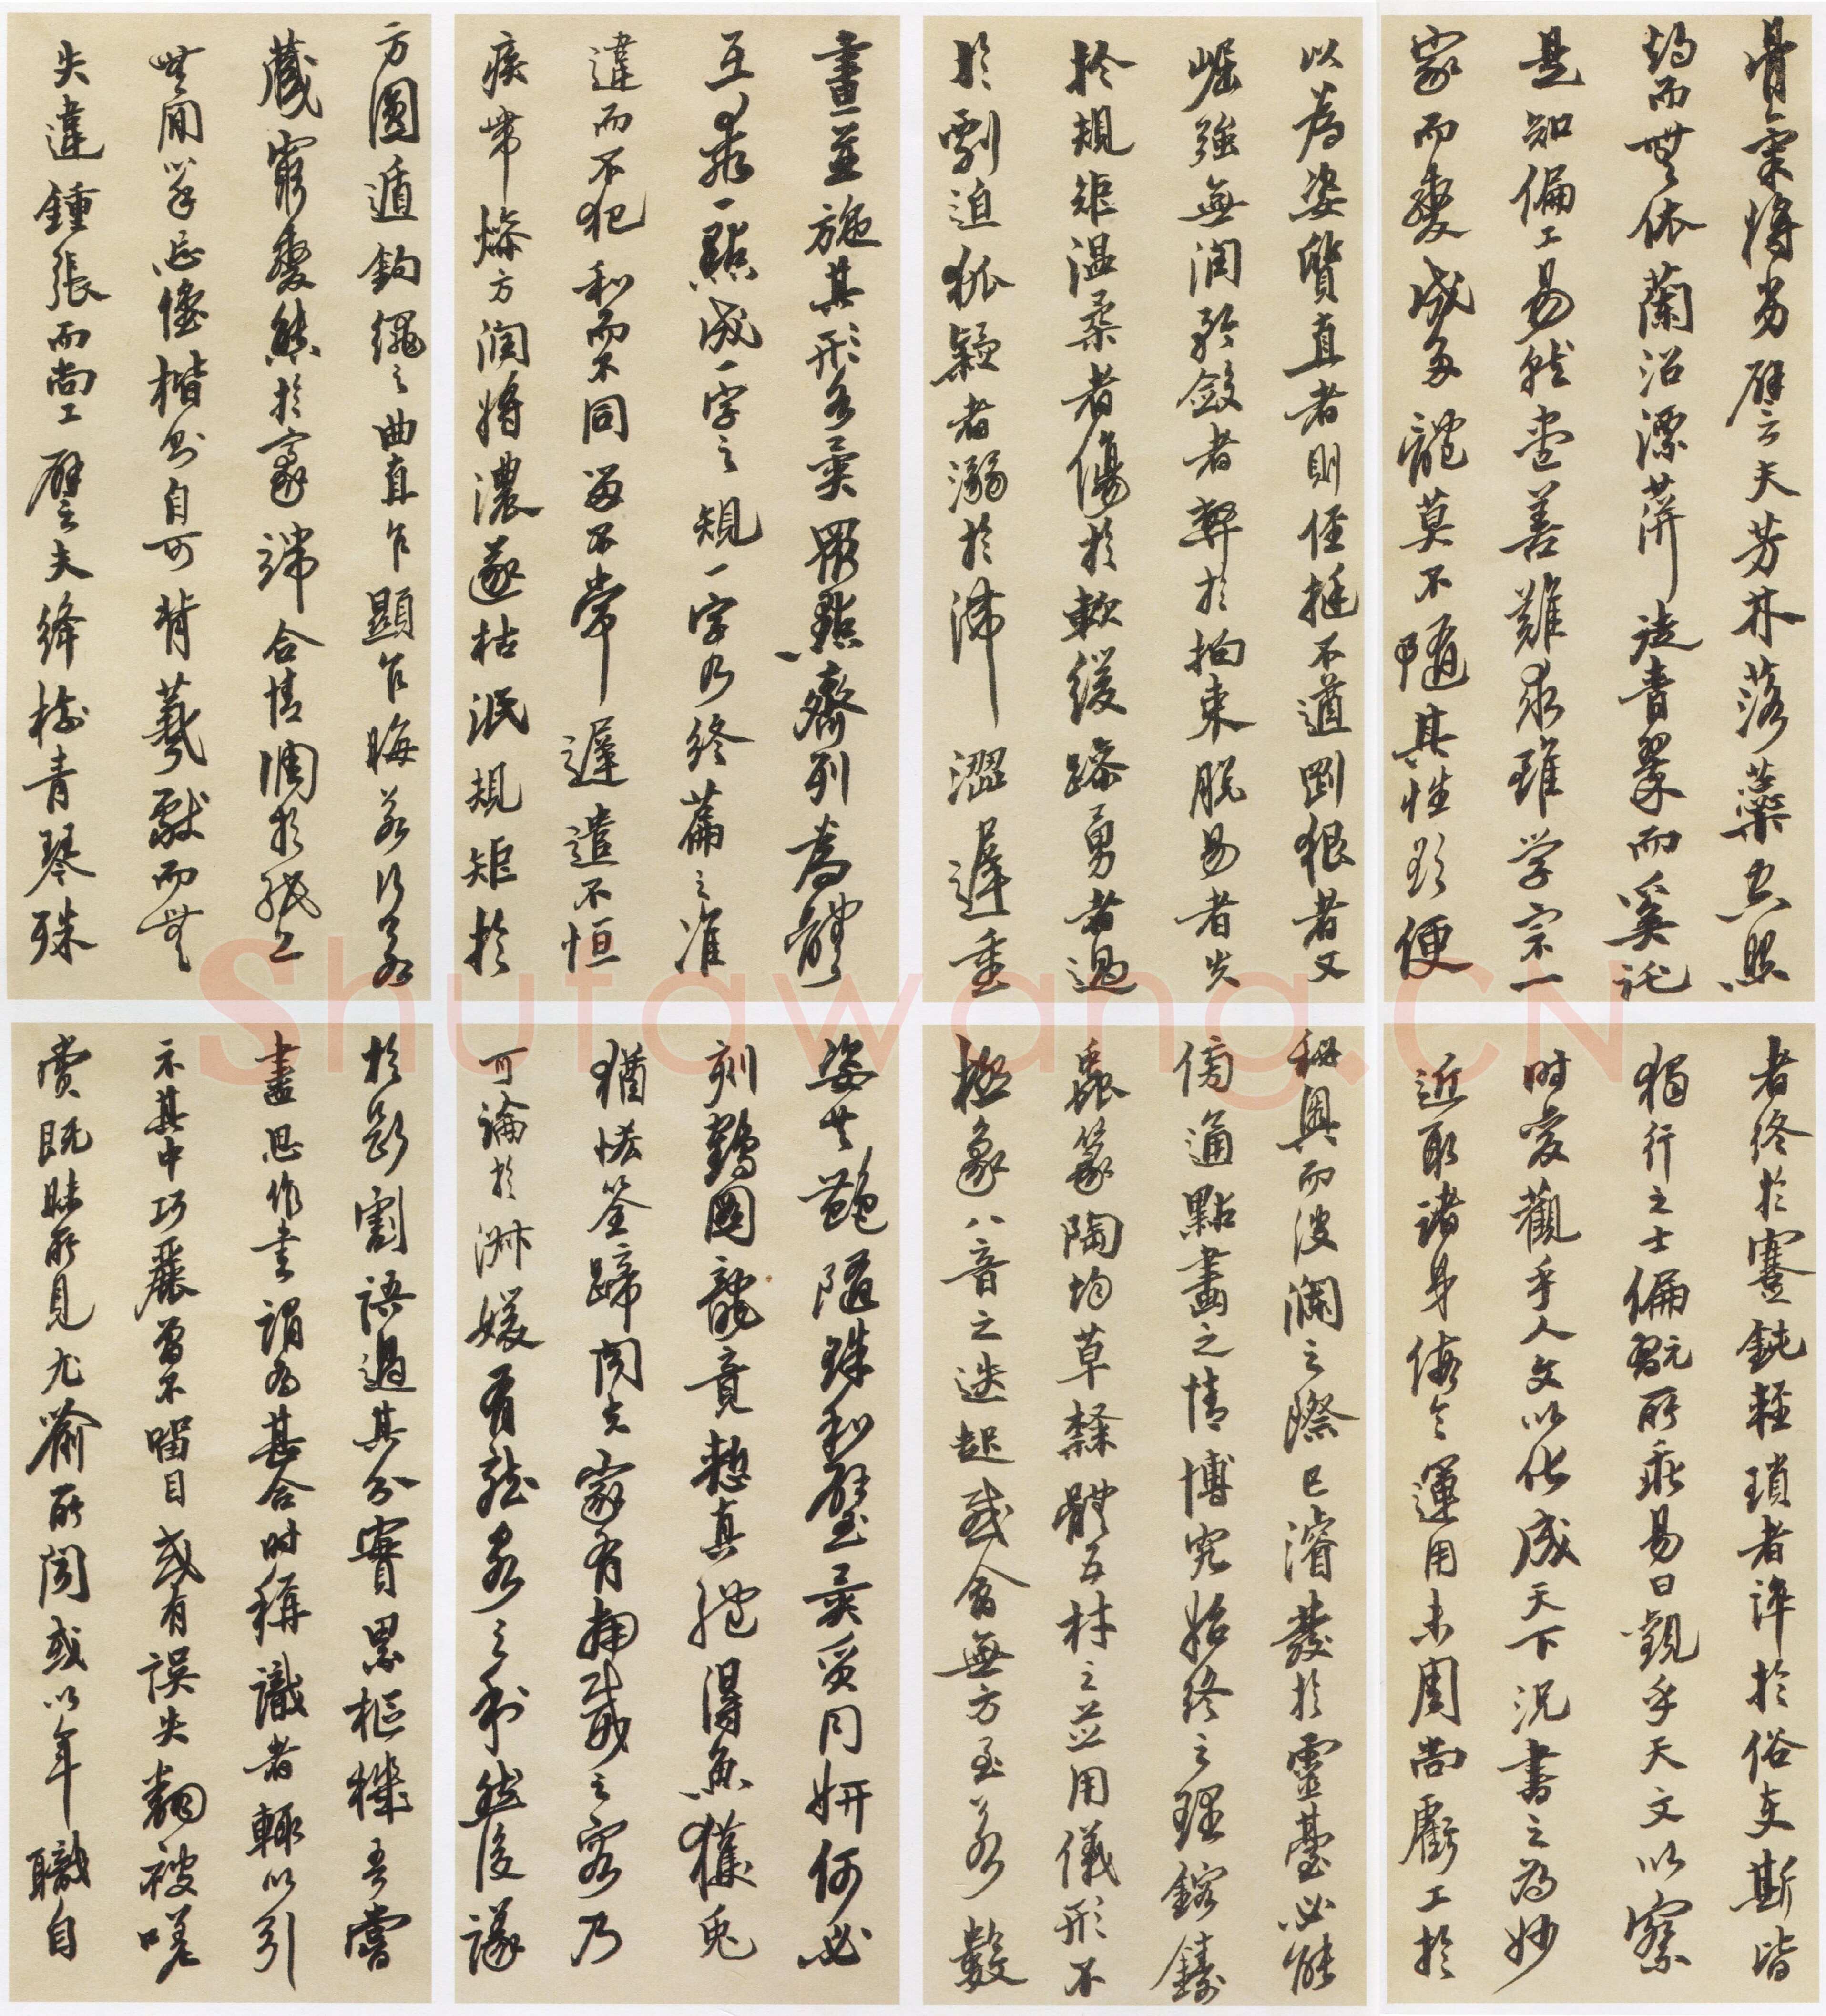 骨氣將劣譬夫芳林落蘂空照
灼而無依蘭沼漂蓱徒青翠而奚託
是知偏工易就盡善難求雖学宗一
家而變成多體莫不隨其性欲便
以為姿質直者則俓挺不遒剛佷者又
崛強無潤矜斂者弊於拘束脫易者失
於規矩温柔者傷於軟緩躁勇者過
於剽迫狐疑者溺於滯澀遲重
者終於蹇鈍輕瑣者淬於俗吏斯皆
獨行之士偏翫所乖易曰觀乎天文以察
時變觀乎人文以化成天下況書之為妙
近取諸身假令運用未周尚虧工於
秘奧而波瀾之際已濬發於靈臺必能
傍通點畫之情博究始終之理鎔鑄
蟲篆陶均草隸體五材之並用儀形不
極象八音之迭起感會無方至若數
畫並施其形各異眾點齊列為體
互乖一點成一字之規一字乃終篇之准
違而不犯和而不同留不常遲遣不恒
疾帶燥方潤將濃遂枯泯規矩於
方圓遁鉤繩之曲直乍顯乍晦若行若
藏窮變態於豪端合情調於紙上
無間心手忘懷楷則自可背羲獻而無
失違鍾張而尚工譬夫絳樹青琴殊
姿共艷隨珠和璧異質同妍何必
刻鶴圖龍竟慙真體得魚獲兔
猶恡筌蹄聞夫家有南威之容乃
可論於淑媛有龍泉之利然後議
於斷割語過其分實累樞機吾嘗
盡思作書謂為甚合時稱識者輒以引
示其中巧麗曾不留目或有誤失翻被嗟
賞既昧所見尤喻所聞或以年職自
Shufawang.CN